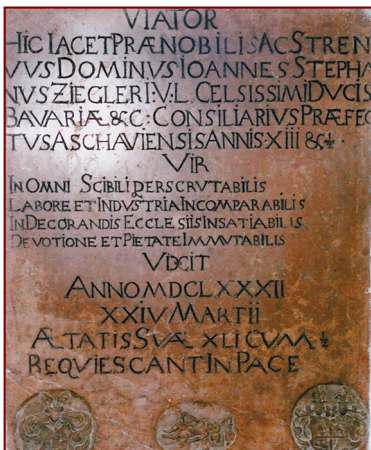 VIATOR
HIC IACET PRÆNOBILIS AC STREN
VVS DOMINVS IOANNES STEPHA
NVS ZIEGLER I.V.L. CELSISSIMI DVCIS
BAVARIÆ &C: CONSILIARIVS PRÆFEC
TVS ASCHAVIENSIS ANNIS XIII & ½ ·
VIR
IN OMNI SCIBILI PERSCRVTABILIS
LABORE ET INDVSTRIA INCOMPARABILIS
IN DECORANDIS ECCLESIIS INSATIABILIS
DEVOTIONE ET PIETATE IMMVTABILIS
ANNO MDCLXXXII
XXIV MARTII
ÆTATIS SVÆ XLI CUM ½
REQVIESCANT IN PACE